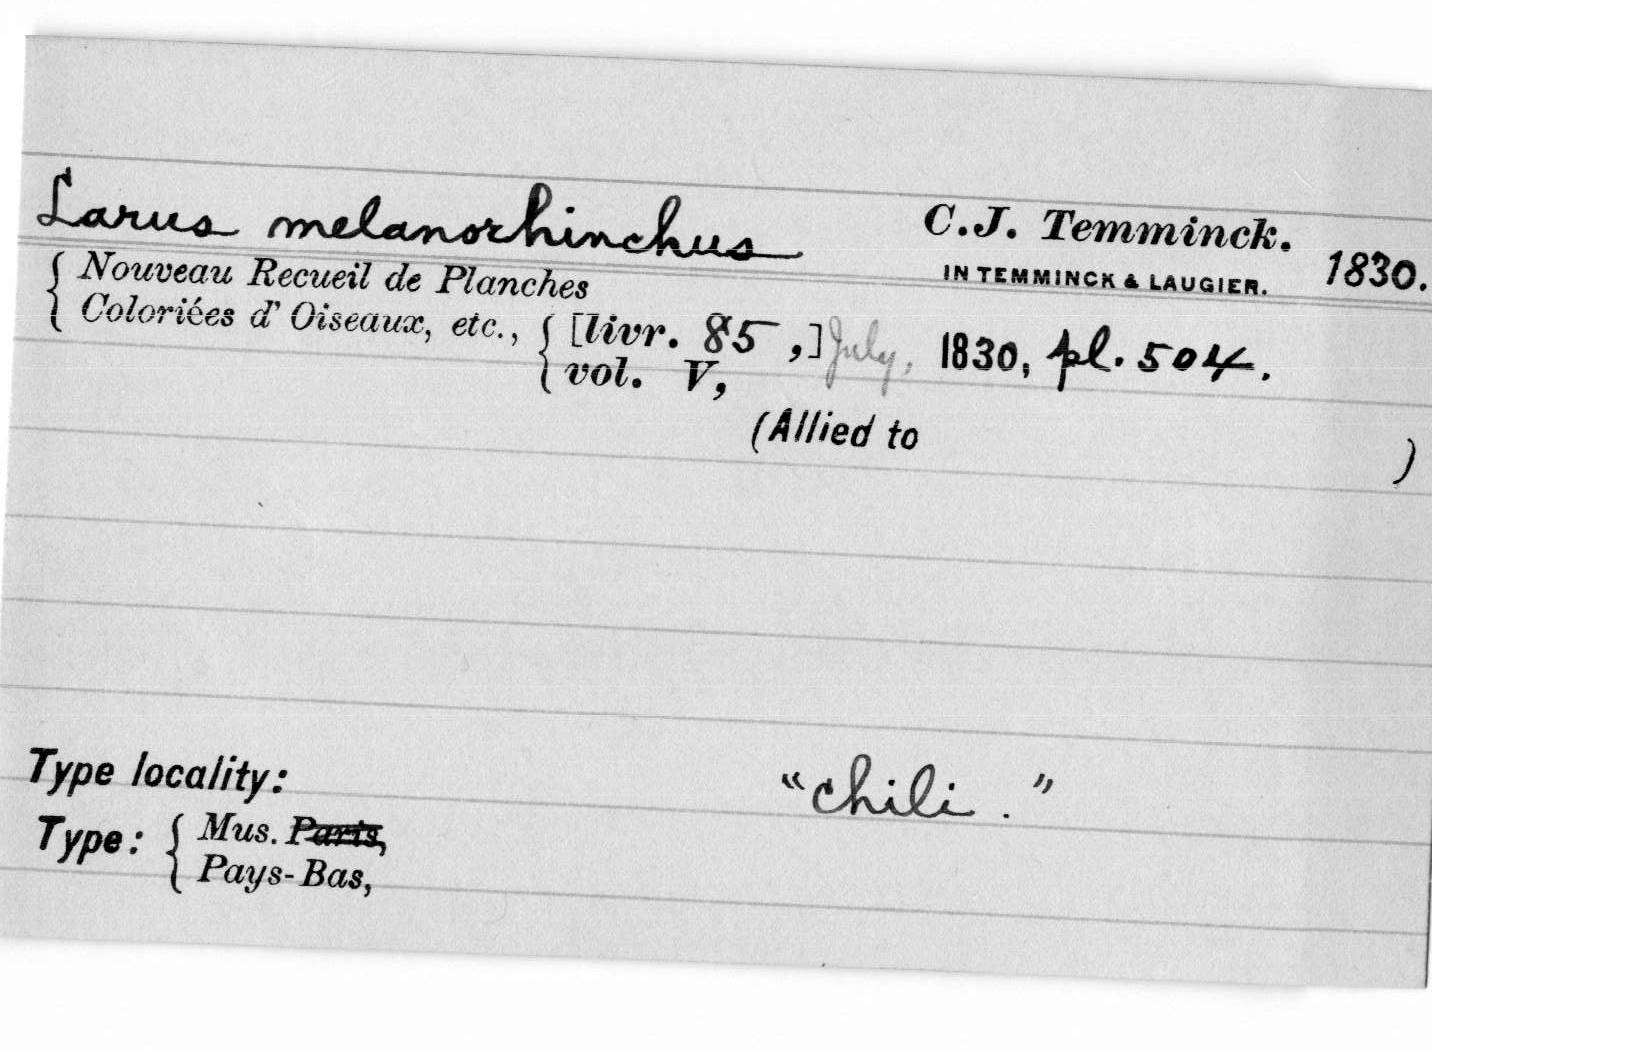 Larus melanorhinchus C.J. Temminck.
IN TEMMINCK & LAUGIER. 1830.
{ Nouveau Recueil de Planches
{ Coloriées d' Oiseaux, etc., { [livr. 85 ,] July, 1830, pl. 504.
{ vol. V,
(Allied to )
Type locality: "Chili."
Type: { Mus. Paris,
{ Pays-Bas,